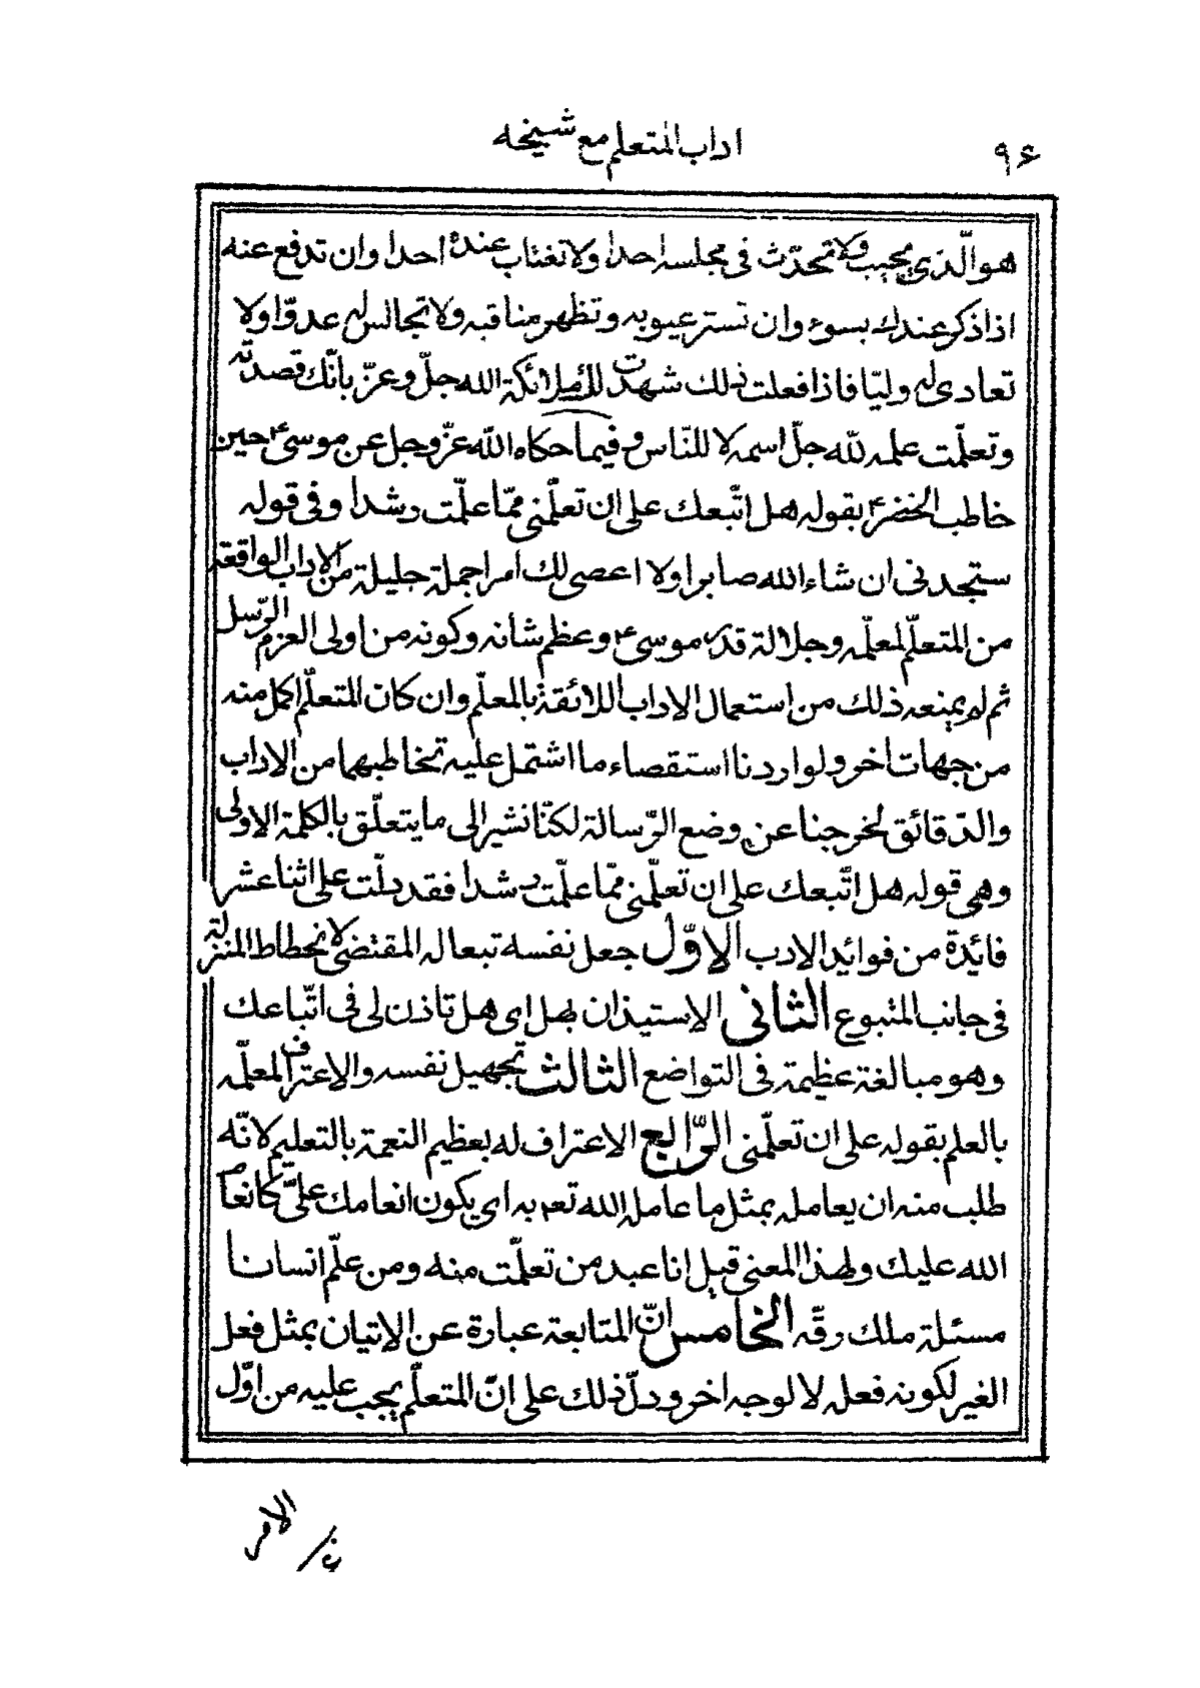 ۹۶
اداب المتعلم مع شیخه
هو الّذی یجیب ولا تحدّث فی مجلسه احدا ولا تغتاب عنده احدا وان تدفع عنه
اذا ذکر عندك بسوء وان تستر عیوبه وتظهر مناقبه ولا تجالس له عدوّا ولا
تعادی له ولیّا فاذا فعلت ذلك شهدت لك ملائكة الله جلّ وعزّ بانّك قصدته
وتعلّمت علمه لله جلّ اسمه لا للنّاس وفیما حکاه الله عزّ وجل عن موسیٰ ع حین
خاطب الخضر ع بقوله هل اتّبعك علی ان تعلّمنی ممّا علّمت رشدا وفی قوله
ستجدنی ان شاء الله صابرا ولا اعصی لك امرا جملة جلیلة من الاداب الواقعة
من المتعلّم لمعلّمه وجلالة قدر موسی ع وعظم شانه وکونه من اولی العزم الرّسل
ثم لم یمنعه ذلك من استعمال الاداب اللائقة بالمعلّم وان کان المتعلّم اکمل منه
من جهات اخر ولو اردنا استقصاء ما اشتمل علیه تخاطبهما من الاداب
والدّقائق لخرجنا عن وضع الرّسالة لکنّا نشیر الی ما یتعلّق بالکلمة الاولی
وهی قوله هل اتّبعك علی ان تعلّمنی ممّا علّمت رشدا فقد دلّت علی اثنا عشر
فائدة من فوائد الادب الاوّل جعل نفسه تبعا له المقتضی لانحطاط المنزلة
فی جانب المتبوع الثانی الاستیذان بهل ای هل تاذن لی فی اتّباعك
وهو مبالغة عظیمة فی التواضع الثالث تجهیل نفسه والاعتراف لمعلّمه
بالعلم بقوله علی ان تعلّمنی الرّابع الاعتراف له بعظیم النعمة بالتعلیم لانّه
طلب منه ان یعامله بمثل ما عامله الله تعه به ای یکون انعامك علیّ کانعام
الله علیك ولهذا المعنی قیل انا عبد من تعلّمت منه ومن علّم انسانا
مسئلة ملك رقّه الخامس انّ المتابعة عبارة عن الاتیان بمثل فعل
الغیر لکونه فعله لا لوجه اخر ودلّ ذلك علی انّ المتعلّم یجب علیه من اوّل
الامر